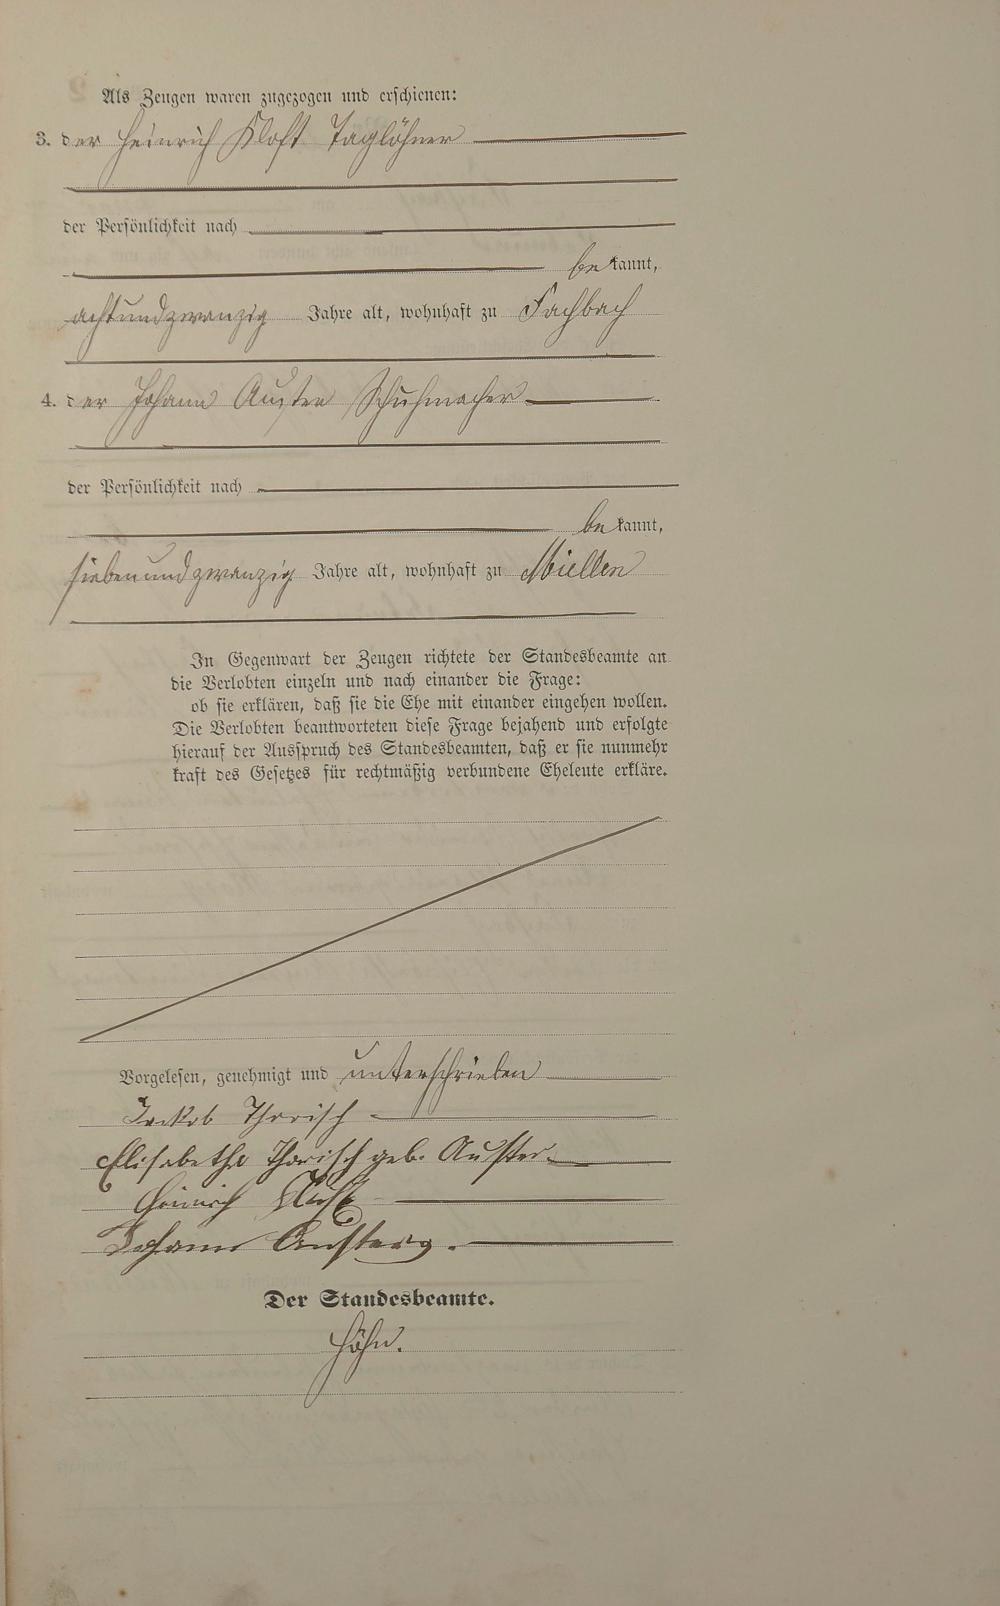 Als Zeugen waren zugezogen und erschienen:
3. der Heinrich Kloft Taglöhner
der Persönlichkeit nach
bekannt,
achtundzwanzig Jahre alt, wohnhaft zu Fachbach
4. der Johann Austen Schuhmacher
der Persönlichkeit nach
bekannt,
siebenundzwanzig Jahre alt, wohnhaft zu Miellen
In Gegenwart der Zeugen richtete der Standesbeamte an
die Verlobten einzeln und nach einander die Frage:
ob sie erklären, daß sie die Ehe mit einander eingehen wollen.
Die Verlobten beantworteten diese Frage bejahend und erfolgte
hierauf der Ausspruch des Standesbeamten, daß er sie nunmehr
kraft des Gesetzes für rechtmäßig verbundene Eheleute erkläre.
Vorgelesen, genehmigt und unterschrieben
Jackob Thorisch
Elisabetha Thorisch geb. Austen
Heinrich Kloft
Johann
Der Standesbeamte.
Höhn.